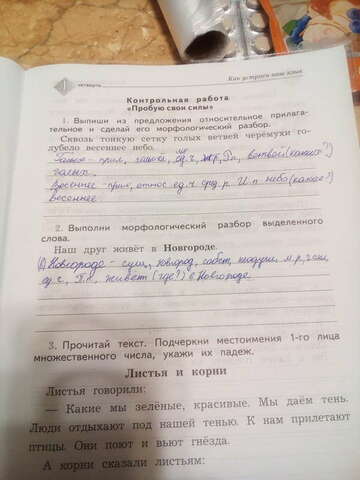 I четверть
Как устроен наш язык
Контрольная работа
«Пробую свои силы»
1. Выпиши из предложения относительное прилага-
тельное и сделай его морфологический разбор.
Сквозь тонкую сетку голых ветвей черёмухи го-
лубело весеннее небо.
прил., ед.ч., Р.п., ветвей (каких?)
Весеннее - прил., относ. ед.ч. сред.р. И.п небо (какое?)
весеннее
2. Выполни морфологический разбор выделенного
слова.
Наш друг живёт в Новгороде.
Новгороде - сущ., новгород, собст., неодуш. м.р., 2 скл
ед.ч., П.п., живёт (где?) в Новгороде.
3. Прочитай текст. Подчеркни местоимения 1-го лица
множественного числа, укажи их падеж.
Листья и корни
Листья говорили:
— Какие мы зелёные, красивые. Мы даём тень.
Люди отдыхают под нашей тенью. К нам прилетают
птицы. Они поют и вьют гнёзда.
А корни сказали листьям: